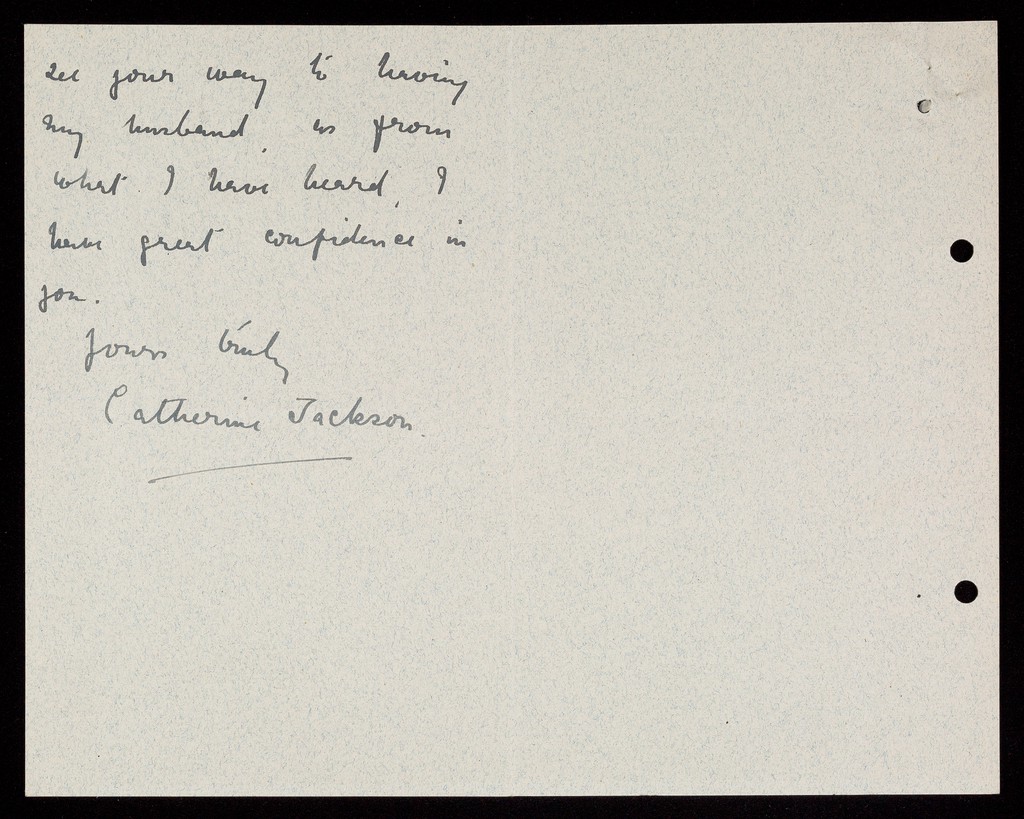 see your way to having
my husband, as from
what I have heard, I
have great confidence in
you.
Yours truly
Catherine Jackson.